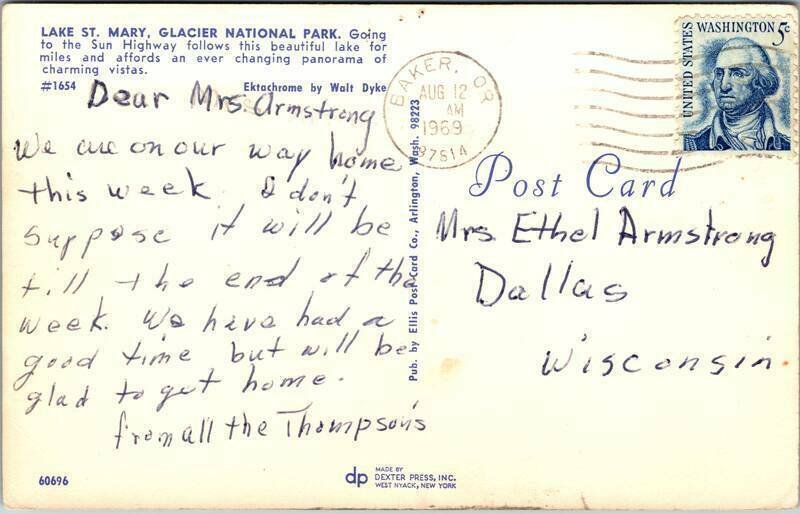 LAKE ST. MARY, GLACIER NATIONAL PARK. Going
to the Sun Highway follows this beautiful lake for
miles and affords an ever changing panorama of
charming vistas.
#1654 Ektachrome by Walt Dyke
Dear Mrs. Armstrong
We are on our way home
this week. I don't
suppose it will be
till the end of the
week. We have had a
good time but will be
glad to get home.
from all the Thompson's
60696
Pub. by Ellis Post Card Co., Arlington, Wash. 98223
BAKER, OR
AUG 12
AM
1969
97814
UNITED STATES
WASHINGTON 5c
Post Card
Mrs. Ethel Armstrong
Dallas
Wisconsin
dp
MADE BY
DEXTER PRESS, INC.
WEST NYACK, NEW YORK